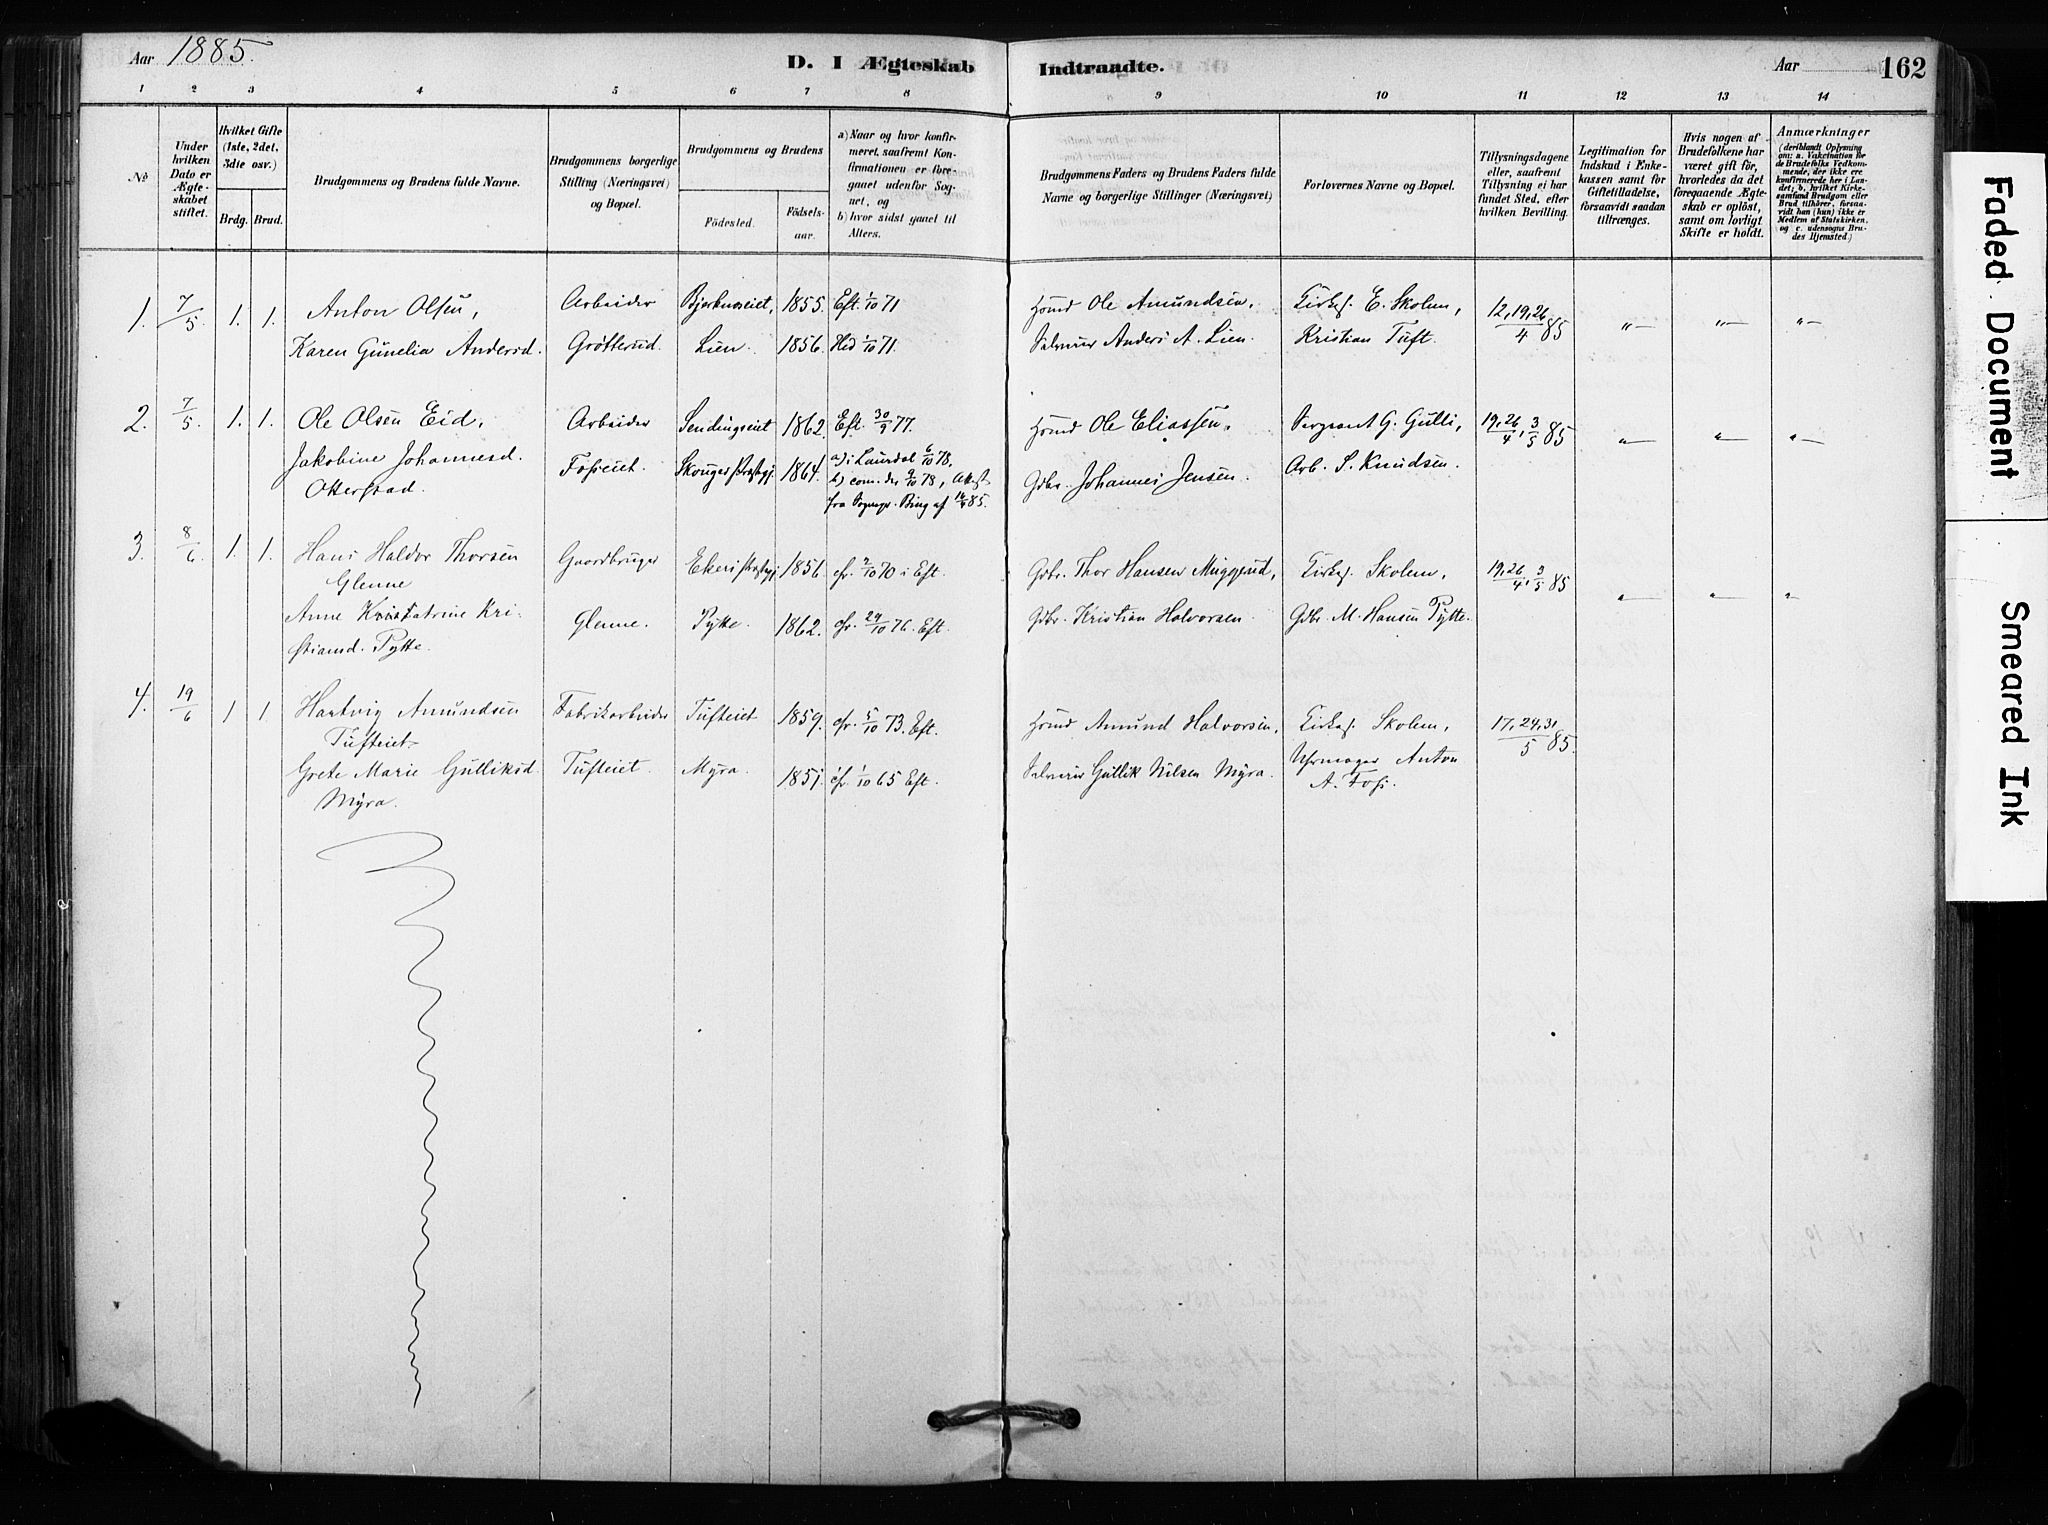 Aar 1885.
D. I Ægteskab Indtraadte.
Aar
162
1 2 3 4 5 6 7 8 9 10 11 12 13 14
No
Under hvilken Dato er Ægteskabet stiftet.
Hvilket Gifte (1ste, 2det, 3dte osv.)
Brdg. Brud.
Brudgommens og Brudens fulde Navne.
Brudgommens borgerlige Stilling (Næringsvei) og Bopæl.
Brudgommens og Brudens
Födested.
Födsels-aar.
a) Naar og hvor konfirmeret, saafremt Konfirmationen er foregaaet udenfor Sognet, og
b) hvor sidst gaaet til Alters.
Brudgommens Faders og Brudens Faders fulde Navne og borgerlige Stillinger (Næringsvei)
Forlovernes Navne og Bopæl.
Tillysningsdagene eller, saafremt Tillysning ei har fundet Sted, efter hvilken Bevilling.
Legitimation for Indskud i Enkekassen samt for Giftetilladelse, forsaavidt saadan tiltrænges.
Hvis nogen af Brudefolkene har været gift för, hvorledes da det foregaaende Ægteskab er oplöst, samt om lovligt Skifte er holdt.
Anmærkninger (deriblandt Oplysning om: a. Vakcination for de Brudefolks Vedkommende, der ikke ere konfirmerede her i Landet; b. hvilket Kirkesamfund Brudgom eller Brud tilhörer, forsaavidt han (hun) ikke er Medlem af Statskirken, og c. udensogns Brudes Hjemsted.)
1. 7/5. 1. 1. Anton Olsen, Arbeider Bjerknæseiet, 1855. Eft. 1/10 71 Hmd Ole Amundsen, Kirkes. E. Skolem, 12, 19, 26/4 85 "— "— "—
Karen Gunelia Andersd. Grötterud. Lien. 1856. Hed 1/10 71. Selveier Anders A. Lien. Kristian Tuft.
2. 7/5. 1. 1. Ole Olsen Eid, Arbeider Sendingseiet 1862. Eft. 30/9 77. Hmd Ole Eliassen, Sergeant G. Gulli, 19, 26/4, 3/5 85 "— "— "—
Jakobine Johannesd. Fosseiet. Skouger Præstgj. 1864. a) i Laurdal 6/10 78, Gdbr. Johannes Jensen. Arb. S. Knudsen.
Otterstad. b) com. der 9/10 78, Attest
fra Sognepr. Bing af 14/4 85.
3. 8/6 1. 1. Hans Haldor Thorsen Gaardbruger Ekers Præstgj. 1856. cfr. 2/10 70 i Eft. Gdbr. Thor Hansen Muggerud, Kirkes. Skolem, 19, 26/4, 3/5 85 "— "— "—
Glenne
Anne Katrine Kri- Glenne. Pytte. 1862. cfr. 29/10 76. Eft. Gdbr. Kristian Halvorsen. Gdbr. M. Hansen Pytte.
stiansd. Pytte.
4. 19/6 1 1. Hartvig Amundsen Fabrikarbeider Tufteiet 1859. cfr. 5/10 73. Eft. Hmd Amund Halvorsen, Kirkes. Skolem, 17, 24, 31/5 85.
Tufteiet
Grete Marie Gulliksd. Tufteiet. Myra. 1851. cfr. 1/10 65 Eft. Selveier Gullik Nilsen Myra. Uhrmager Anton
Myra. A. Foss.
Faded Document
Smeared Ink